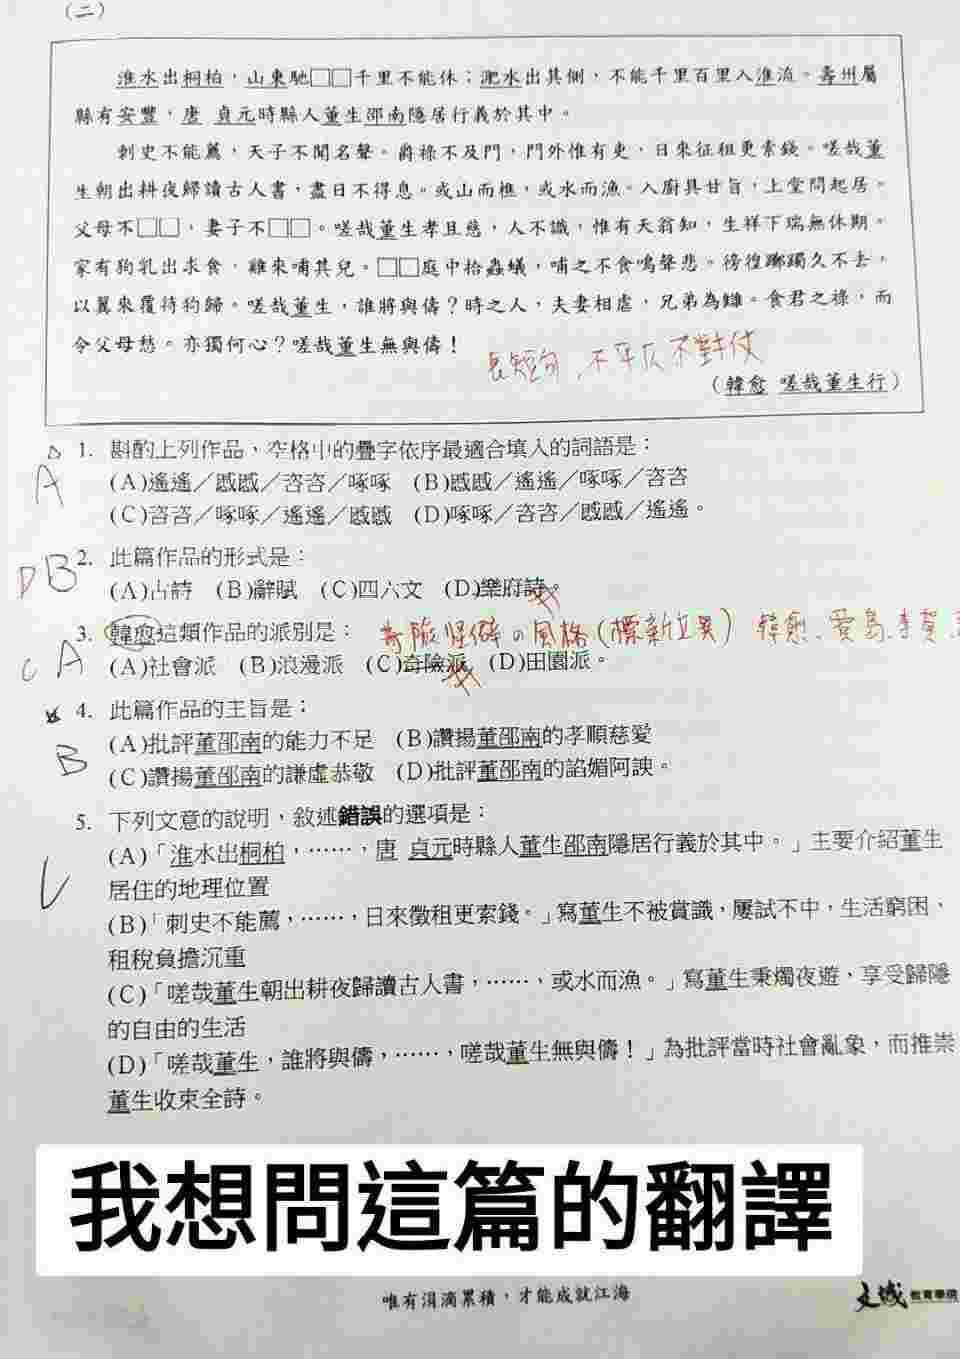 (二)
淮水出桐柏，山東馳□□千里不能休；淝水出其側，不能千里百里入淮流。壽州屬
縣有安豐，唐 貞元時縣人董生邵南隱居行義於其中。
刺史不能薦，天子不聞名聲。爵祿不及門，門外惟有吏，日來征租更索錢。嗟哉董
生朝出耕夜歸讀古人書，盡日不得息。或山而樵，或水而漁。入廚具甘旨，上堂問起居。
父母不□□，妻子不□□。嗟哉董生孝且慈，人不識，惟有天翁知，生祥下瑞無休期。
家有狗乳出求食，雞來哺其兒。□□庭中拾蟲蟻，哺之不食鳴聲悲。徬徨躑躅久不去，
以翼來覆待狗歸。嗟哉董生，誰將與儔？時之人，夫妻相虐，兄弟為讎。食君之祿，而
令父母愁。亦獨何心？嗟哉董生無與儔！
長短句、不平仄不對仗
（韓愈 嗟哉董生行）
A
1. 斟酌上列作品、空格中的疊字依序最適合填入的詞語是：
(A)遙遙／慼慼／咨咨／啄啄 (B)慼慼／遙遙／啄啄／咨咨
(C)咨咨／啄啄／遙遙／慼慼 (D)啄啄／咨咨／慼慼／遙遙。
D B
2. 此篇作品的形式是：
(A)古詩 (B)辭賦 (C)四六文 (D)樂府詩。
3. 韓愈這類作品的派別是： 奇險怪僻の風格(標新立異) 韓愈、賈島、李賀、
C A
(A)社會派 (B)浪漫派 (C)奇險派 (D)田園派。
4. 此篇作品的主旨是：
B
(A)批評董邵南的能力不足 (B)讚揚董邵南的孝順慈愛
(C)讚揚董邵南的謙虛恭敬 (D)批評董邵南的諂媚阿諛。
5. 下列文意的說明，敘述錯誤的選項是：
(A)「淮水出桐柏，……，唐 貞元時縣人董生邵南隱居行義於其中。」主要介紹董生
居住的地理位置
(B)「刺史不能薦，……，日來徵租更索錢。」寫董生不被賞識，屢試不中，生活窮困、
租稅負擔沉重
(C)「嗟哉董生朝出耕夜歸讀古人書，……，或水而漁。」寫董生秉燭夜遊，享受歸隱
的自由的生活
(D)「嗟哉董生，誰將與儔，……，嗟哉董生無與儔！」為批評當時社會亂象，而推崇
董生收束全詩。
我想問這篇的翻譯
唯有涓滴累積，才能成就江海
文城 教育學院